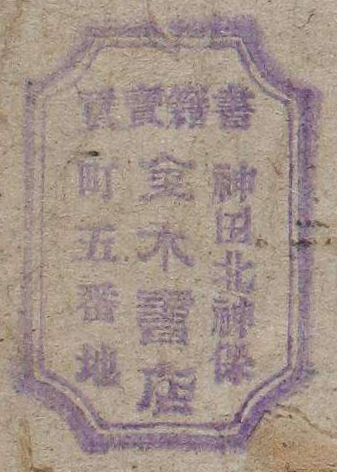 書籍賣買
神田北神保
金木書店
町五番地